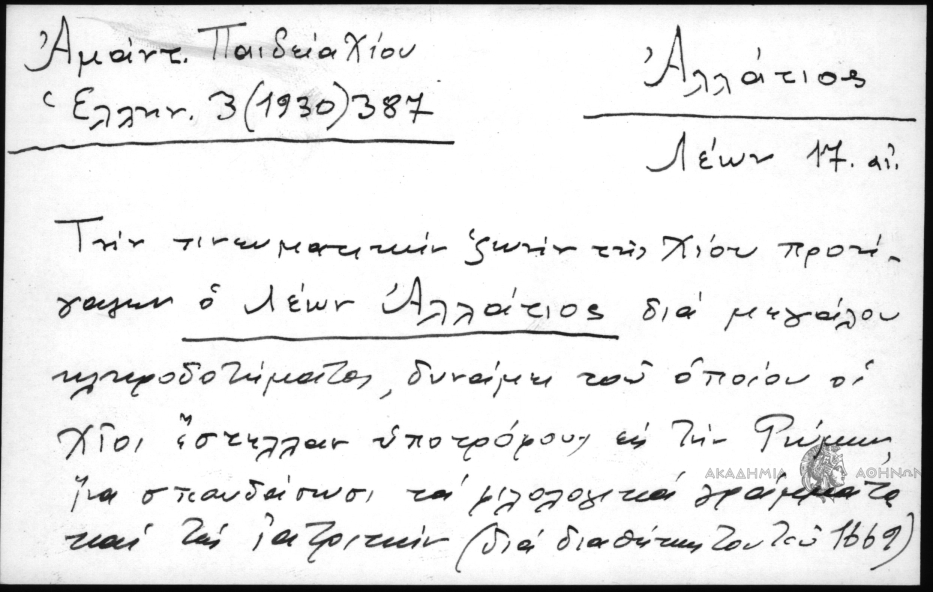 Ἀμάντ. Παιδεία Χίου
Ἑλλην. 3 (1930) 387
Ἀλλάτιος
Λέων 17. αἰ.
Τὴν πνευματικὴν ζωὴν τῆς Χίου προή-
γαγεν ὁ Λέων Ἀλλάτιος διὰ μεγάλου
κληροδοτήματος, δυνάμει τοῦ ὁποίου οἱ
Χῖοι ἔστελλαν ὑποτρόφους εἰς τὴν Ρώμην
νὰ σπουδάσωσι τὰ φιλολογικὰ γράμματα
καὶ τὴν ἰατρικὴν (διὰ διαθήκης του τοῦ 1669)
ΑΚΑΔΗΜΙΑ ΑΘΗΝΩΝ